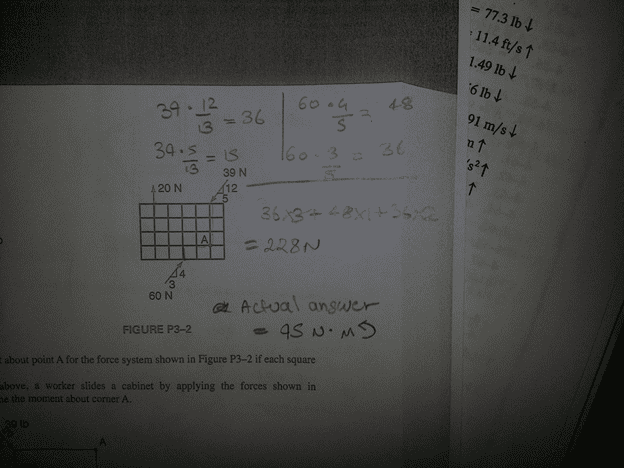 = 77.3 lb ↓
11.4 ft/s ↑
1.49 lb ↓
6 lb ↓
91 m/s ↓
n ↑
s² ↑
↑
39 · 12/13 = 36
60 · 4/5 = 48
39 · 5/13 = 15
60 · 3/5 = 36
39 N
20 N
12
5
A
36x3 + 48x1 + 36x2
= 228N
4
3
60 N
Actual answer
= 95 N·M
FIGURE P3–2
about point A for the force system shown in Figure P3–2 if each square
above, a worker slides a cabinet by applying the forces shown in
ne the moment about corner A.
lb
A